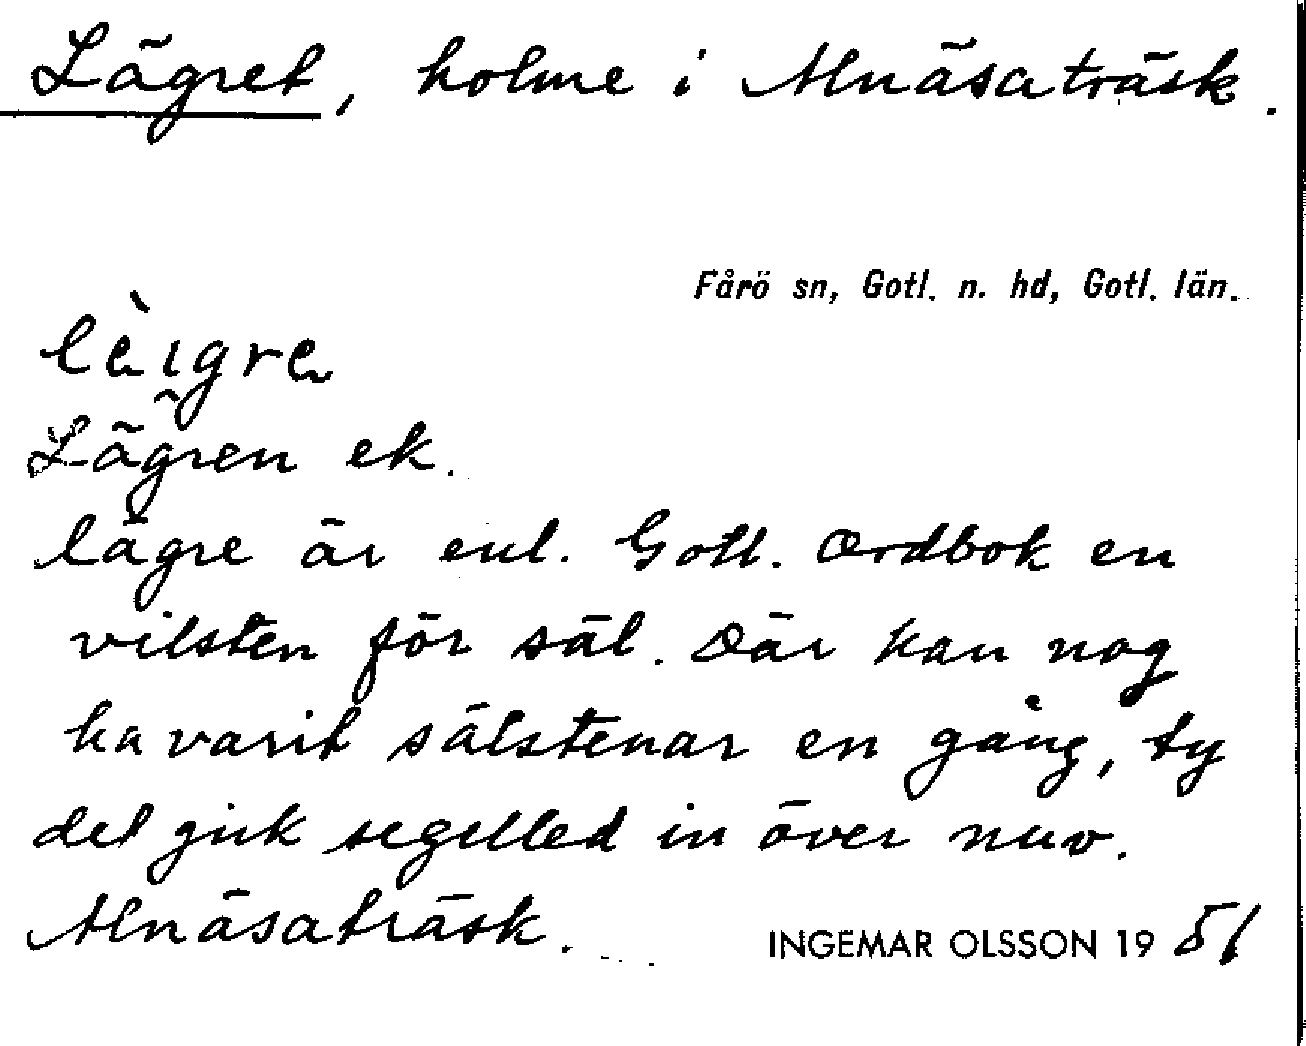 Lägret, holme i Alnäsaträsk.
Fårö sn, Gotl. n. hd, Gotl. län.
lèıgre
Lägren ek.
lägre är enl. Gotl. Ordbok en
vilsten för säl. Där kan nog
ha varit sälstenar en gång, ty
det gick segelled in över nuv.
Alnäsaträsk.
INGEMAR OLSSON 1951